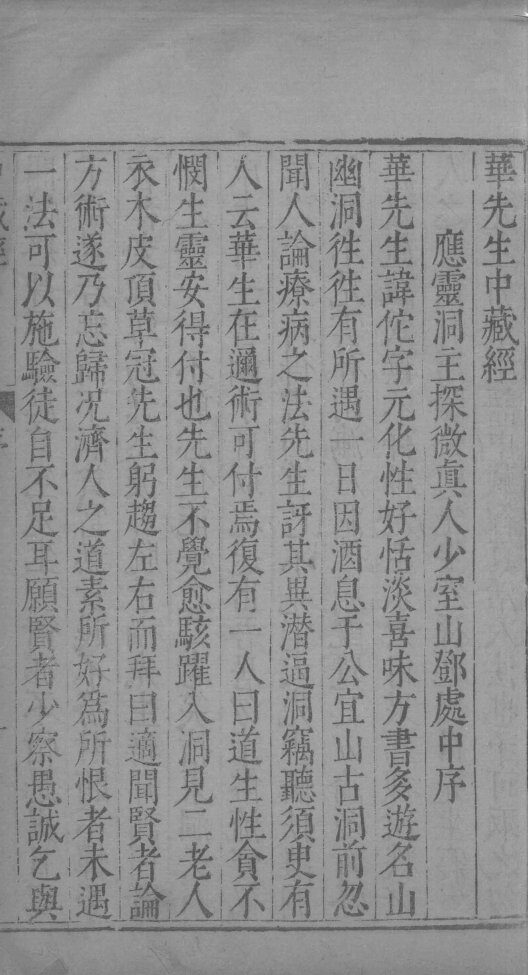 華先生中藏經
應靈洞主探微真人少室山鄧處中序
華先生諱佗字元化性好恬淡喜味方書多遊名山
幽洞徃徃有所遇一日因酒息于公宜山古洞前忽
聞人論療病之法先生訝其異潜逼洞竊聽須臾有
人云華生在邇術可付焉復有一人曰道生性貪不
憫生靈安得付也先生不覺愈駭躍入洞見二老人
衣木皮頂草冠先生躬趨左右而拜曰適聞賢者論
方術遂乃忘歸况濟人之道素所好為所恨者未遇
一法可以施驗徒自不足耳願賢者少察愚誠乞與